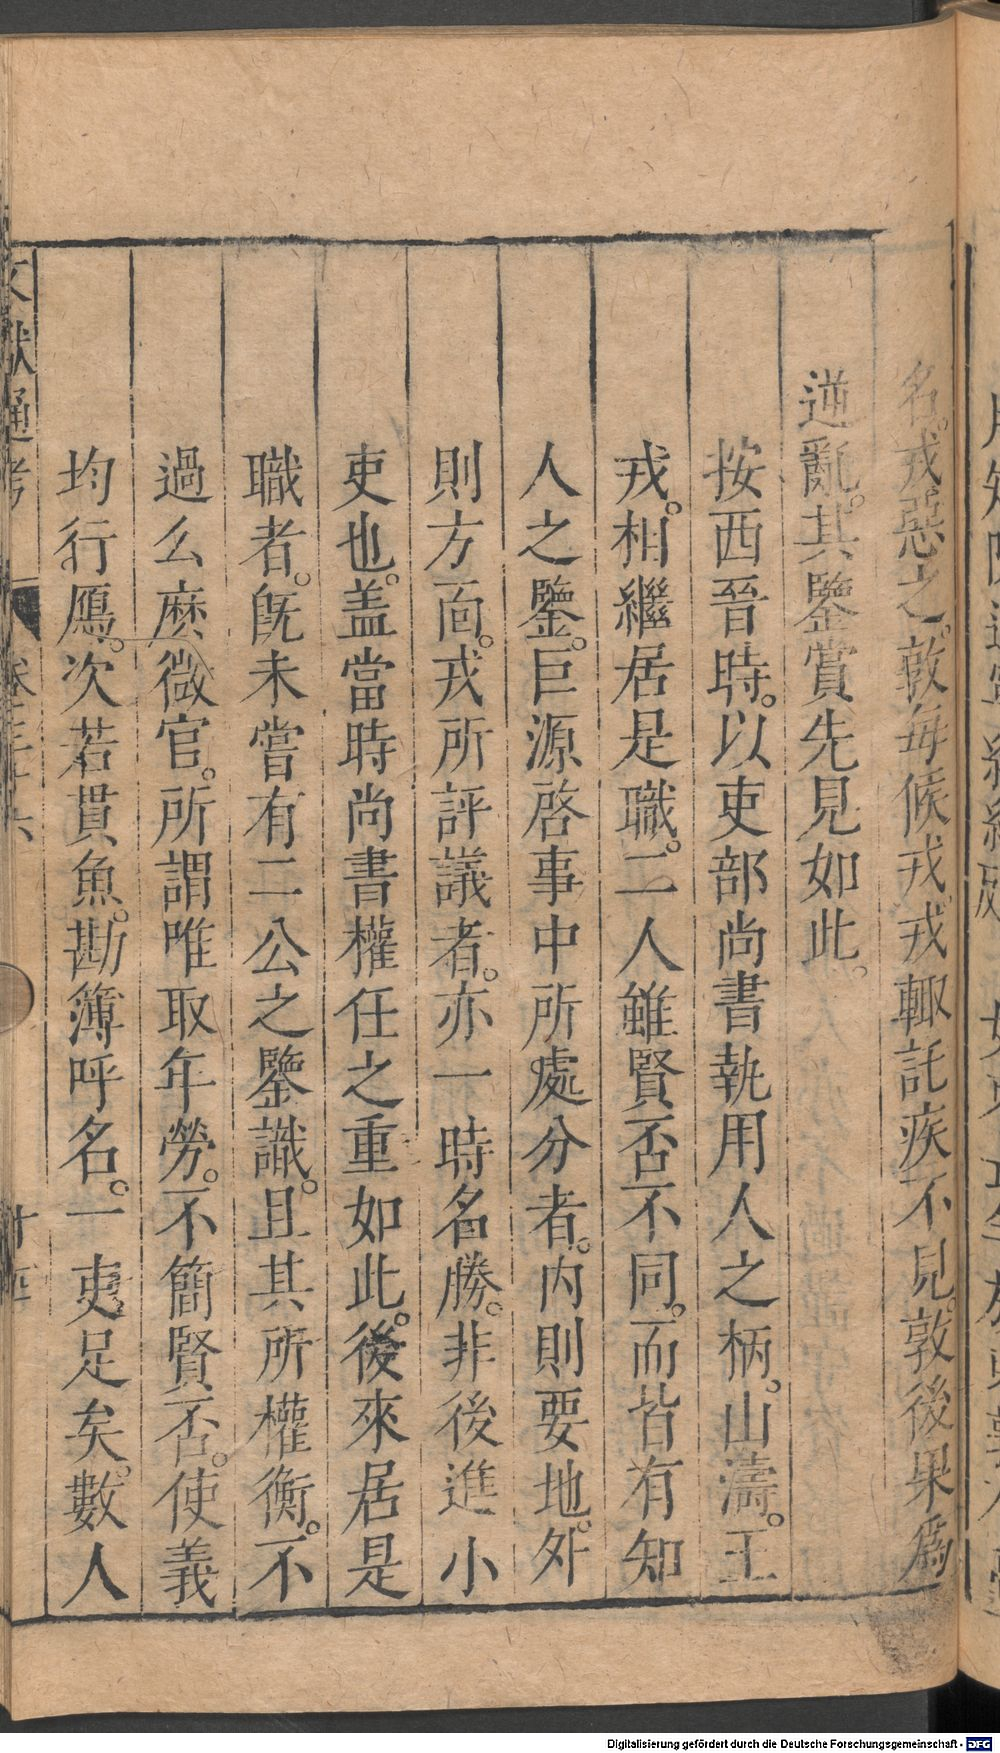 名。戎惡之。敦每候戎。戎輙託疾不見。敦後果爲
逆亂。其鑒賞先見如此。
按西晉時。以吏部尚書執用人之柄。山濤。王
戎。相繼居是職。二人雖賢否不同。而皆有知
人之鑒。巨源啓事中所處分者。内則要地。外
則方面。戎所評議者。亦一時名勝。非後進小
吏也。盖當時尚書權任之重如此。後來居是
職者。旣未嘗有二公之鑒識。且其所權衡。不
過么麽微官。所謂唯取年勞。不簡賢否。使義
均行鴈。次若貫魚。勘簿呼名。一吏足矣。數人
文獻通考 卷三十六 十四
Digitalisierung gefördert durch die Deutsche Forschungsgemeinschaft - DFG